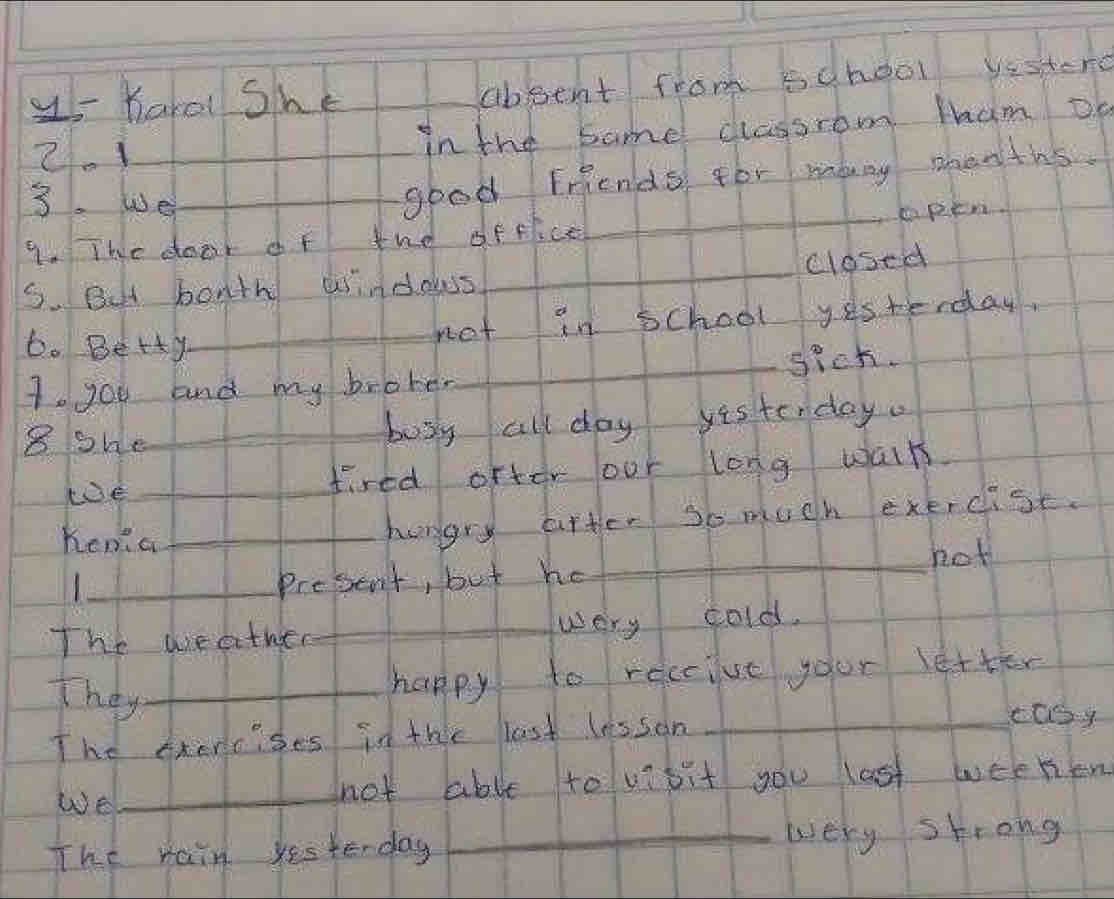 1.- Karol She ______ absent from school yesterd
2. I ______ in the same classrom tham Da
3. We ______ good friends for many months.
4. The door of the office ______ open.
5. But bonth windows ______ closed
6. Betty ______ not in school yesterday.
7. you and my broter ______ sick.
8 She ______ busy all day yesterday.
We ______ tired after our long walk
Kenia ______ hungry after so much exercise.
I ______ present, but he ______ not
The weather ______ wery cold.
They ______ happy to receive your letter
The exercises in the last lesson ______ easy
We ______ not able to visit you last weeken
The rain yesterday ______ wery strong